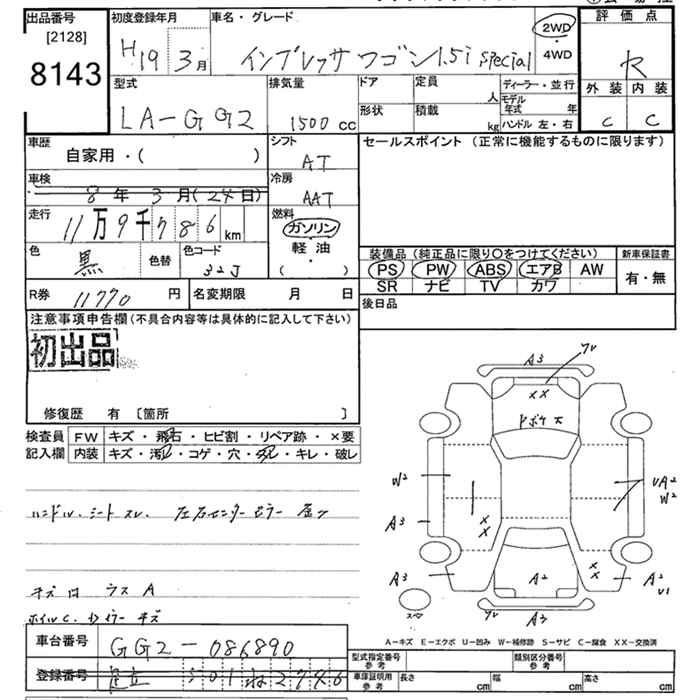 出品番号
[2128]
8143
初度登録年月
H19 3月
車名・グレード
インプレッサワゴン 1.5i special
2WD
・
4WD
評価点
R
外装 内装
C C
型式
LA-GG2
排気量
1500 cc
ドア
定員
人
ディーラー・並行
モデル年式 年
形状
積載
kg
ハンドル 左・右
車歴
自家用・( )
シフト
AT
セールスポイント (正常に機能するものに限ります)
車検
8年 3月(24日)
冷房
AAT
走行
11万9千786km
燃料
ガソリン
軽油
・
( )
色
黒
色替
色コード
32J
装備品 (純正品に限り○をつけてください)
PS PW ABS エアB AW
SR ナビ TV カワ
新車保証書
有・無
R券 11770 円
名変期限 月 日
後日品
注意事項申告欄 (不具合内容等は具体的に記入して下さい)
初出品
修復歴 有 [箇所 ]
検査員
記入欄
FW キズ・飛石・ヒビ割・リペア跡・×要
内装 キズ・汚レ・コゲ・穴・スレ・キレ・破レ
ハンドル、シート スレ、左右センターピラー 歪ッ
キズ
ウス A
ホイルC
キズ
A3
フレ
XX
W2
A3
XX
UA2
W2
A3
A2
XX
A2
U1
スペア
A3
A-キズ E-エクボ U-凹み W-補修跡 S-サビ C-腐食 XX-交換済
車台番号
GG2-086890
登録番号
足立 501 ね 2746
型式指定番号
参考
類別区分番号
参考
車庫証明用
参考
長さ cm
幅 cm
高さ cm